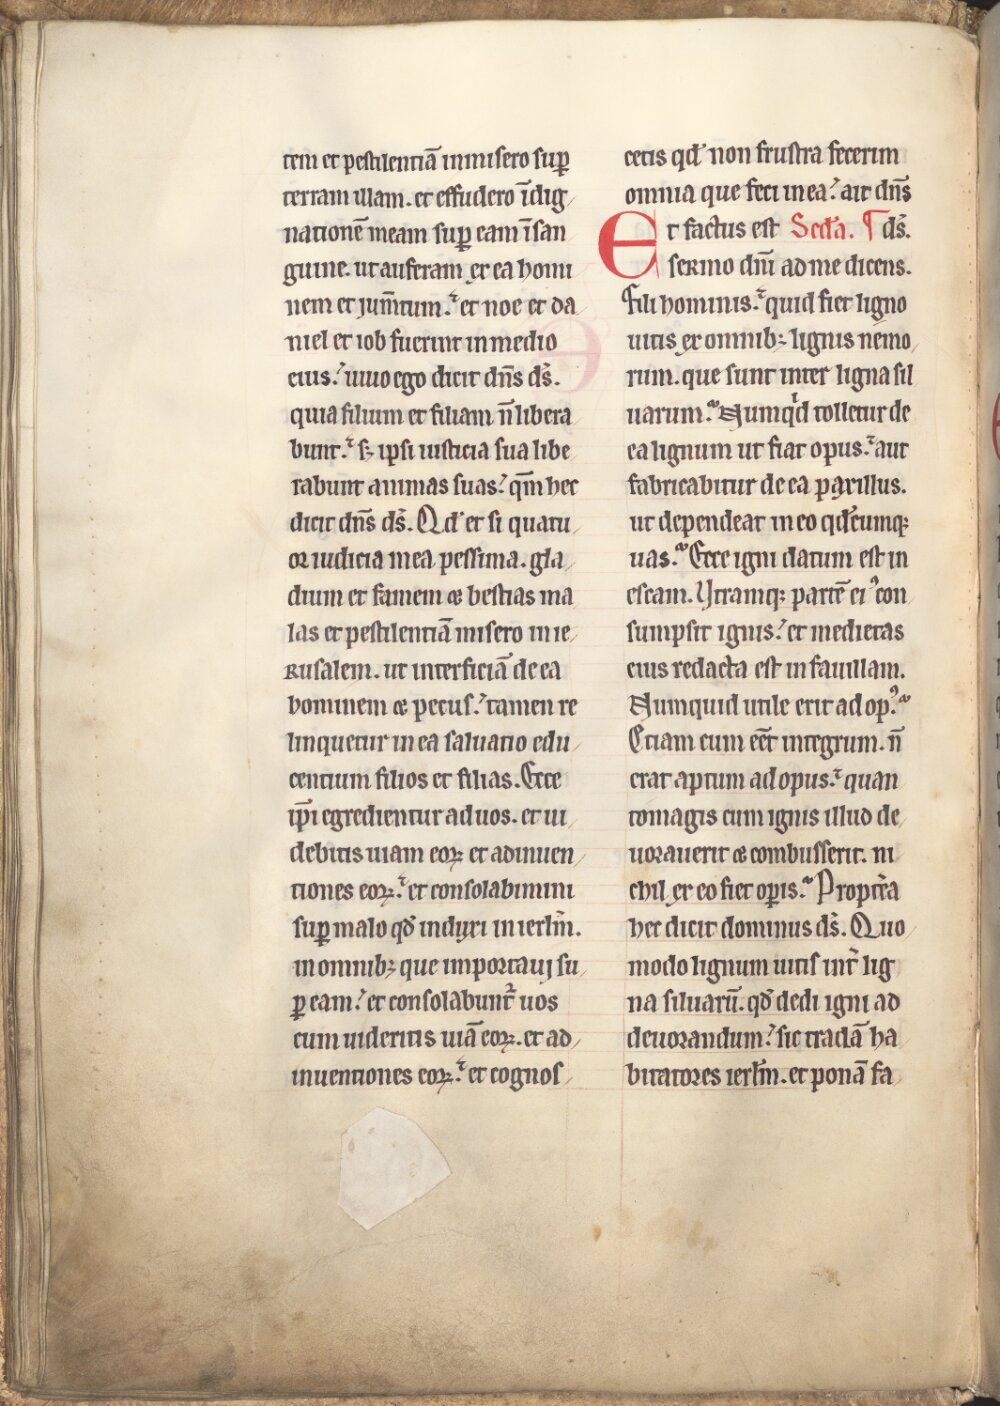 tem et pestilentiā inmisero suꝑ
terram illam. et effudero īdig
nationē meam suꝑ eam ī san
guine. ut auferam ex ea homi
nem et jum̄tum. et noe et da
niel et iob fuerint in medio
eius. uiuo ego dicit dn̄s ds̄.
quia filium et filiam n̄ libera
bunt. s; ipsi iusticia sua libe
rabunt animas suas. qm̄ hec
dicit dn̄s ds̄. Qd' et si quatu
or iudicia mea pessima. gla
dium et famem & bestias ma
las et pestilentiā misero in ie
rusalem. ut interficiā de ea
hominem & pecus. tamen re
linquetur in ea saluatio edu
centium filios et filias. Ecce
ip̄i egredientur ad uos. et ui
debitis uiam eoꝝ et adinuen
tiones eoꝝ. et consolabimini
suꝑ malo qd̄ induxi in ierl̄m.
in omnib; que importauj su
ꝑ eam. et consolabunt̄ uos
cum uideritis uiā eoꝝ. et ad
inuentiones eoꝝ. et cognos
cetis qd' non frustra fecerim
omnia que feci in ea. ait dn̄s
Et factus est Scd'a. ¶ ds̄.
sermo dn̄i ad me dicens.
Fili hominis. quid fiet ligno
uitis ex omnib; lignis nemo
rum. que sunt inter ligna sil
uarum. Numqⁱd tolletur de
ea lignum ut fiat opus. aut
fabricabitur de ea paxillus.
ut dependeat in eo qd'cumqꝫ
uas. Ecce igni datum est in
escam. Utramqꝫ partē ei⁹ con
sumpsit ignis. et medietas
eius redacta est in fauillam.
Numquid utile erit ad op⁹.
Etiam cum eēt integrum. n̄
erat aptum ad opus. quan
tomagis cum ignis illud de
uorauerit & combusserit. ni
chil ex eo fiet opis. Propt̄ea
hec dicit dominus ds̄. Quo
modo lignum uitis int̄ lig
na siluarū. qd̄ dedi igni ad
deuorandum. sic tradā ha
bitatores ierl̄m. et ponā fa